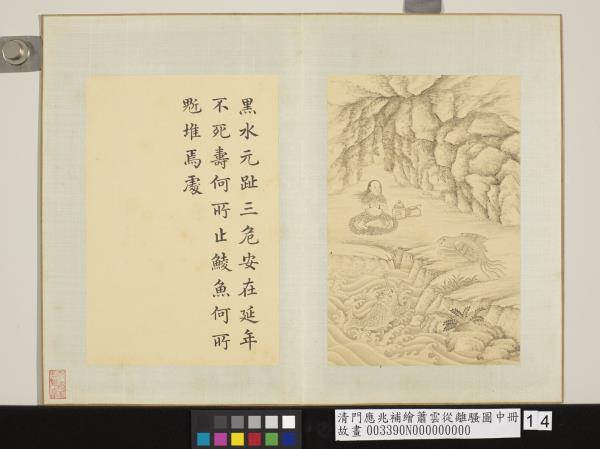 黑水元趾三危安在延年
不死壽何所止鯪魚何所
鬿堆焉處
清門應兆補繪蕭雲從離騷圖中冊
故畫 003390N000000000
14